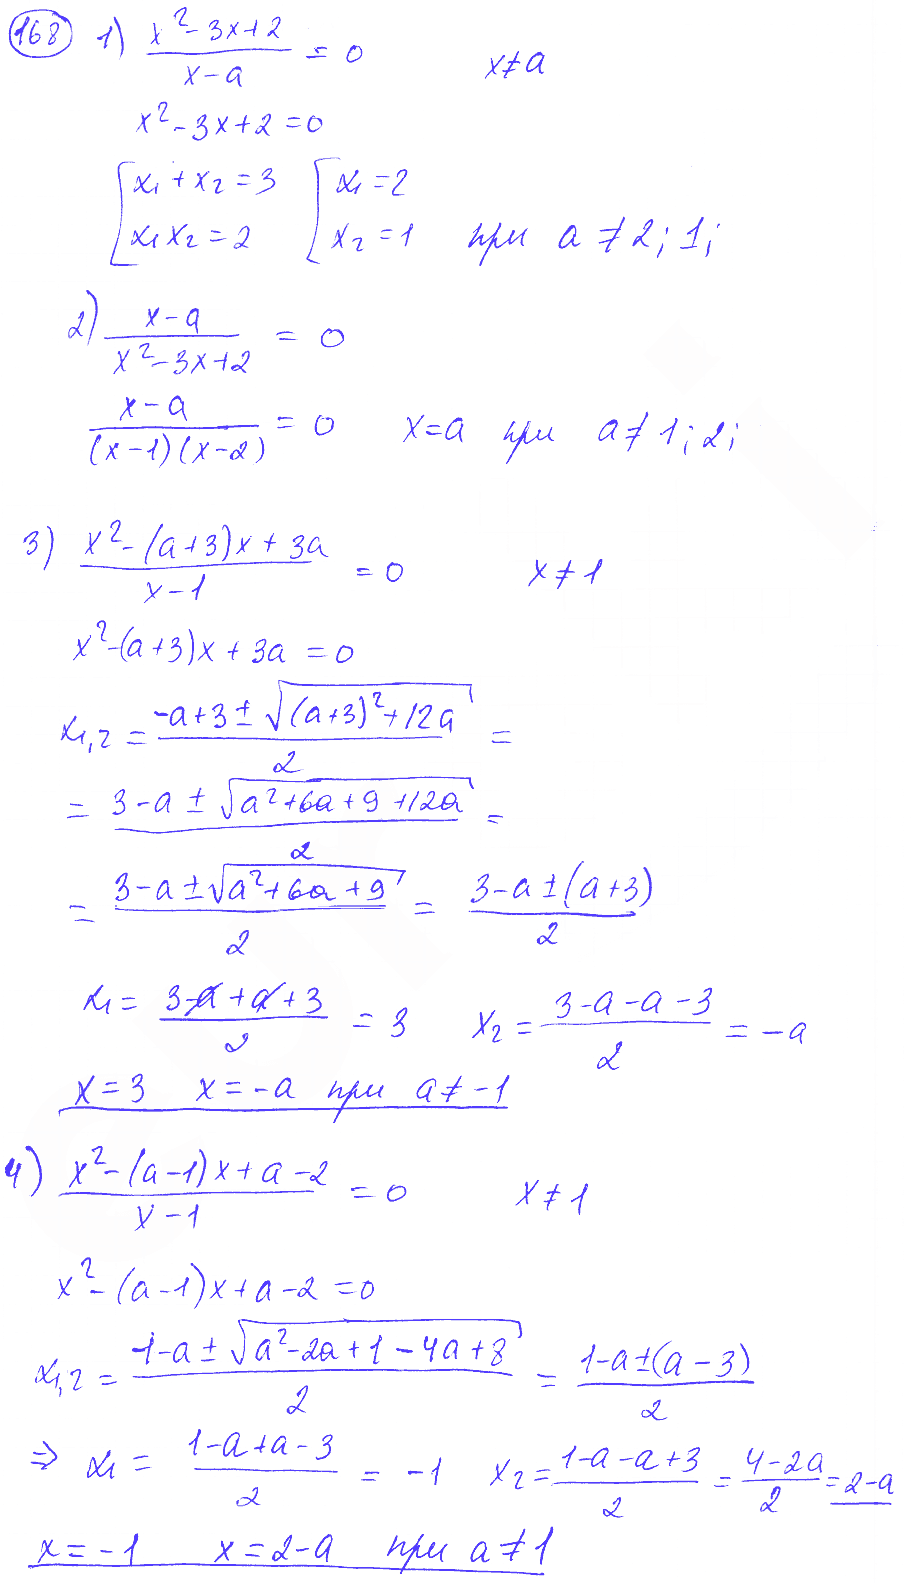 168 1) (x² - 3x + 2)/(x - a) = 0 x ≠ a
x² - 3x + 2 = 0
[x₁ + x₂ = 3 [x₁ = 2
[x₁x₂ = 2 [x₂ = 1 при a ≠ 2; 1;
2) (x - a)/(x² - 3x + 2) = 0
(x - a)/((x - 1)(x - 2)) = 0 x = a при a ≠ 1; 2;
3) (x² - (a + 3)x + 3a)/(x - 1) = 0 x ≠ 1
x² - (a + 3)x + 3a = 0
x₁,₂ = (-a + 3 ± √((a + 3)² + 12a))/2 =
= (3 - a ± √(a² + 6a + 9 + 12a))/2 =
= (3 - a ± √(a² + 6a + 9))/2 = (3 - a ± (a + 3))/2
x₁ = (3 - a + a + 3)/2 = 3 x₂ = (3 - a - a - 3)/2 = -a
x = 3 x = -a при a ≠ -1
4) (x² - (a - 1)x + a - 2)/(x - 1) = 0 x ≠ 1
x² - (a - 1)x + a - 2 = 0
x₁,₂ = (1 - a ± √(a² - 2a + 1 - 4a + 8))/2 = (1 - a ± (a - 3))/2
⇒ x₁ = (1 - a + a - 3)/2 = -1 x₂ = (1 - a - a + 3)/2 = (4 - 2a)/2 = 2 - a
x = -1 x = 2 - a при a ≠ 1